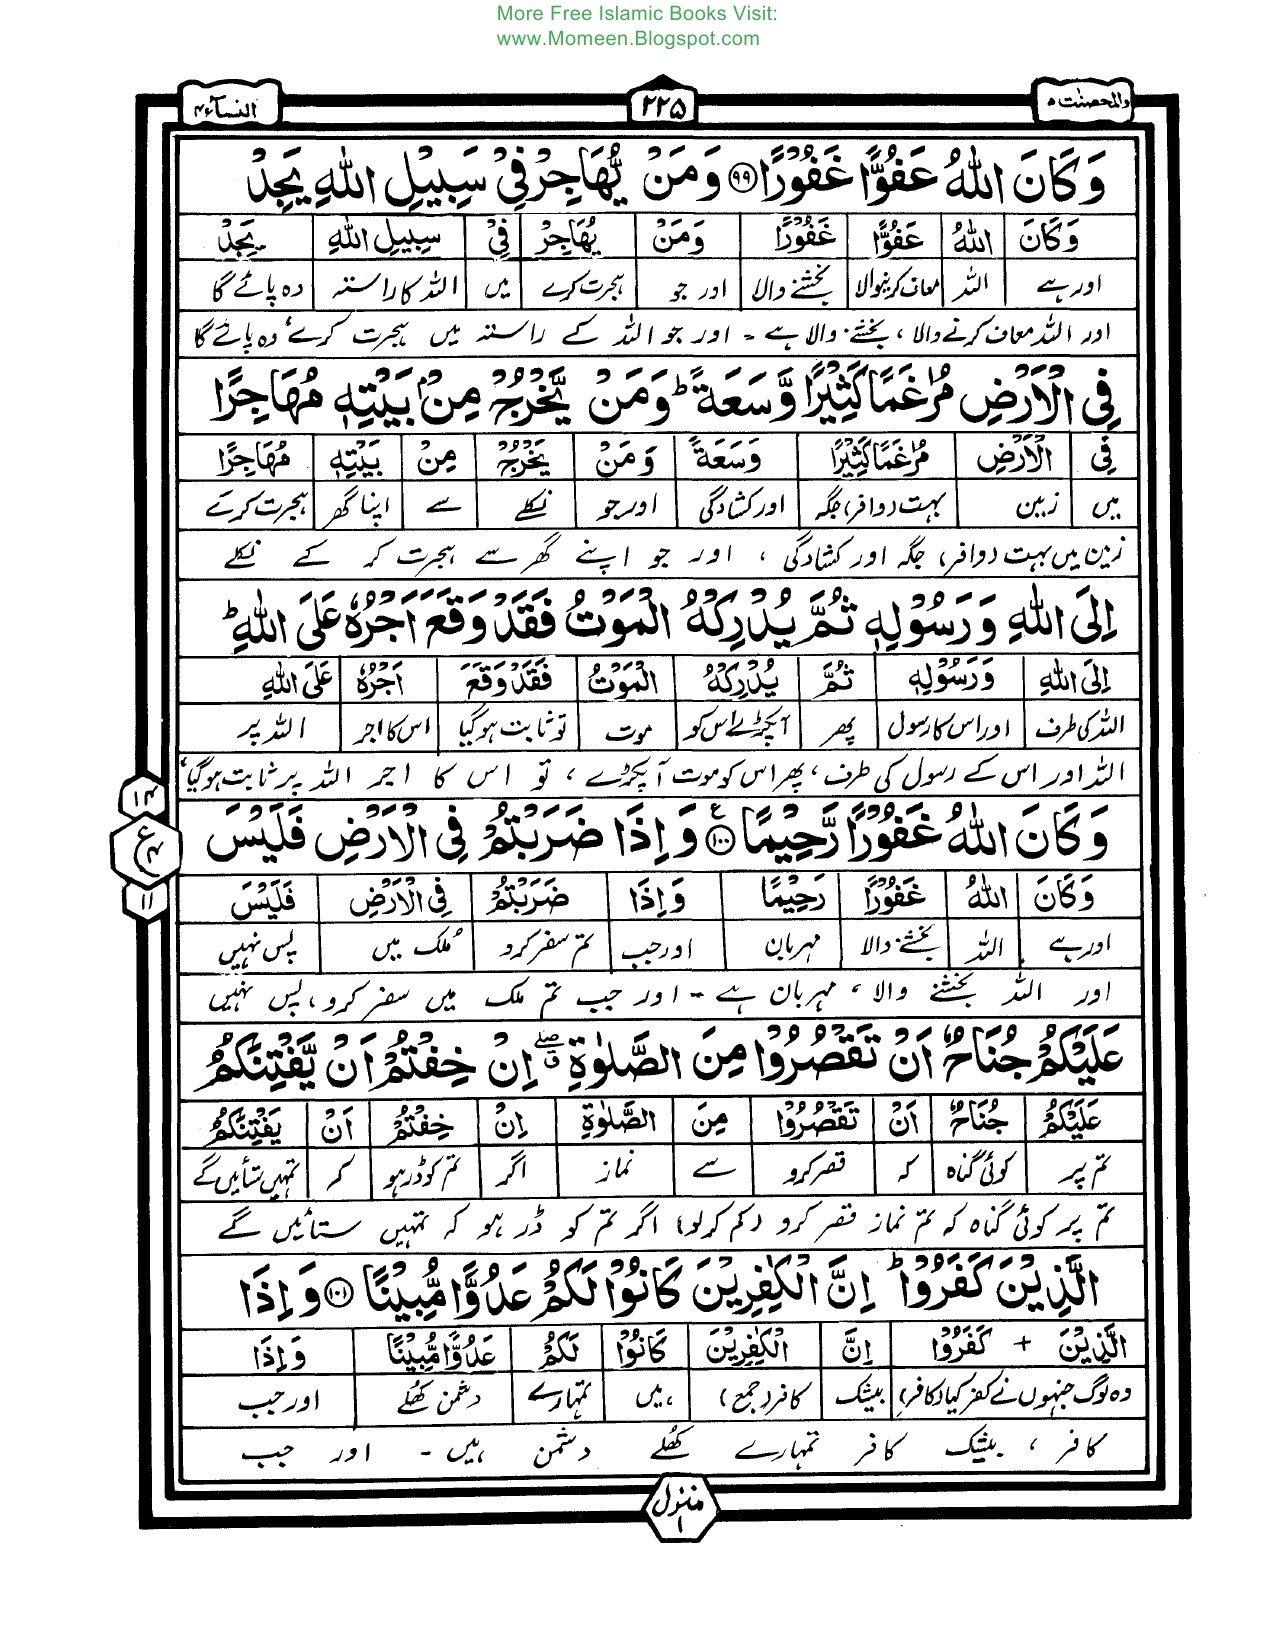 More Free Islamic Books Visit:
www.Momeen.Blogspot.com
والمحصنٰت ۵ ۲۲۵ النسآء ۴
وَكَانَ اللّٰهُ عَفُوًّا غَفُوْرًا ۹۹ وَمَنْ يُّهَاجِرْ فِيْ سَبِيْلِ اللّٰهِ يَجِدْ
وَكَانَ اللّٰهُ عَفُوًّا غَفُوْرًا وَمَنْ يُهَاجِرْ فِيْ سَبِيْلِ اللّٰهِ يَجِدْ
اور ہے اللہ معاف کرنیوالا بخشنے والا اور جو ہجرت کرے میں اللہ کا راستہ وہ پائے گا
اور اللہ معاف کرنے والا ، بخشنے والا ہے ۔ اور جو اللہ کے راستہ میں ہجرت کرے ، وہ پائے گا
فِي الْاَرْضِ مُرٰغَمًا كَثِيْرًا وَّسَعَةً ؕ وَمَنْ يَّخْرُجْ مِنْۢ بَيْتِهٖ مُهَاجِرًا
فِي الْاَرْضِ مُرٰغَمًا كَثِيْرًا وَسَعَةً وَمَنْ يَخْرُجْ مِنْ بَيْتِهٖ مُهَاجِرًا
میں زمین بہت (وافر) جگہ اور کشادگی اور جو نکلے سے اپنا گھر ہجرت کرکے
زمین میں بہت (وافر) جگہ اور کشادگی ، اور جو اپنے گھر سے ہجرت کر کے نکلے
اِلَى اللّٰهِ وَرَسُوْلِهٖ ثُمَّ يُدْرِكْهُ الْمَوْتُ فَقَدْ وَقَعَ اَجْرُهٗ عَلَى اللّٰهِ ؕ
اِلَى اللّٰهِ وَرَسُوْلِهٖ ثُمَّ يُدْرِكْهُ الْمَوْتُ فَقَدْ وَقَعَ اَجْرُهٗ عَلَى اللّٰهِ
اللہ کی طرف اور اس کا رسول پھر آپکڑے اس کو موت تو ثابت ہوگیا اس کا اجر اللہ پر
اللہ اور اس کے رسول کی طرف ، پھر اس کو موت آپکڑے ، تو اس کا اجر اللہ پر ثابت ہوگیا ،
۱۴
ع
۴
۱۱
وَكَانَ اللّٰهُ غَفُوْرًا رَّحِيْمًا ۱۰۰ ع وَاِذَا ضَرَبْتُمْ فِي الْاَرْضِ فَلَيْسَ
وَكَانَ اللّٰهُ غَفُوْرًا رَحِيْمًا وَاِذَا ضَرَبْتُمْ فِي الْاَرْضِ فَلَيْسَ
اور ہے اللہ بخشنے والا مہربان اور جب تم سفر کرو ملک میں پس نہیں
اور اللہ بخشنے والا ، مہربان ہے ۔ اور جب تم ملک میں سفر کرو ، پس نہیں
عَلَيْكُمْ جُنَاحٌ اَنْ تَقْصُرُوْا مِنَ الصَّلٰوةِ ۖق اِنْ خِفْتُمْ اَنْ يَّفْتِنَكُمُ
عَلَيْكُمْ جُنَاحٌ اَنْ تَقْصُرُوْا مِنَ الصَّلٰوةِ اِنْ خِفْتُمْ اَنْ يَفْتِنَكُمُ
تم پر کوئی گناہ کہ قصر کرو سے نماز اگر تم کو ڈر ہو کہ تمہیں ستائیں گے
تم پر کوئی گناہ کہ تم نماز قصر کرو (کم کرلو) اگر تم کو ڈر ہو کہ تمہیں ستائیں گے
الَّذِيْنَ كَفَرُوْا ؕ اِنَّ الْكٰفِرِيْنَ كَانُوْا لَكُمْ عَدُوًّا مُّبِيْنًا ۱۰۱ وَاِذَا
الَّذِيْنَ + كَفَرُوْا اِنَّ الْكٰفِرِيْنَ كَانُوْا لَكُمْ عَدُوًّا مُّبِيْنًا وَاِذَا
وہ لوگ جنہوں نے کفر کیا (کافر) بیشک کافر (جمع) ہیں تمہارے دشمن کھلے اور جب
کافر ، بیشک کافر تمہارے کھلے دشمن ہیں ۔ اور جب
منزل ۱